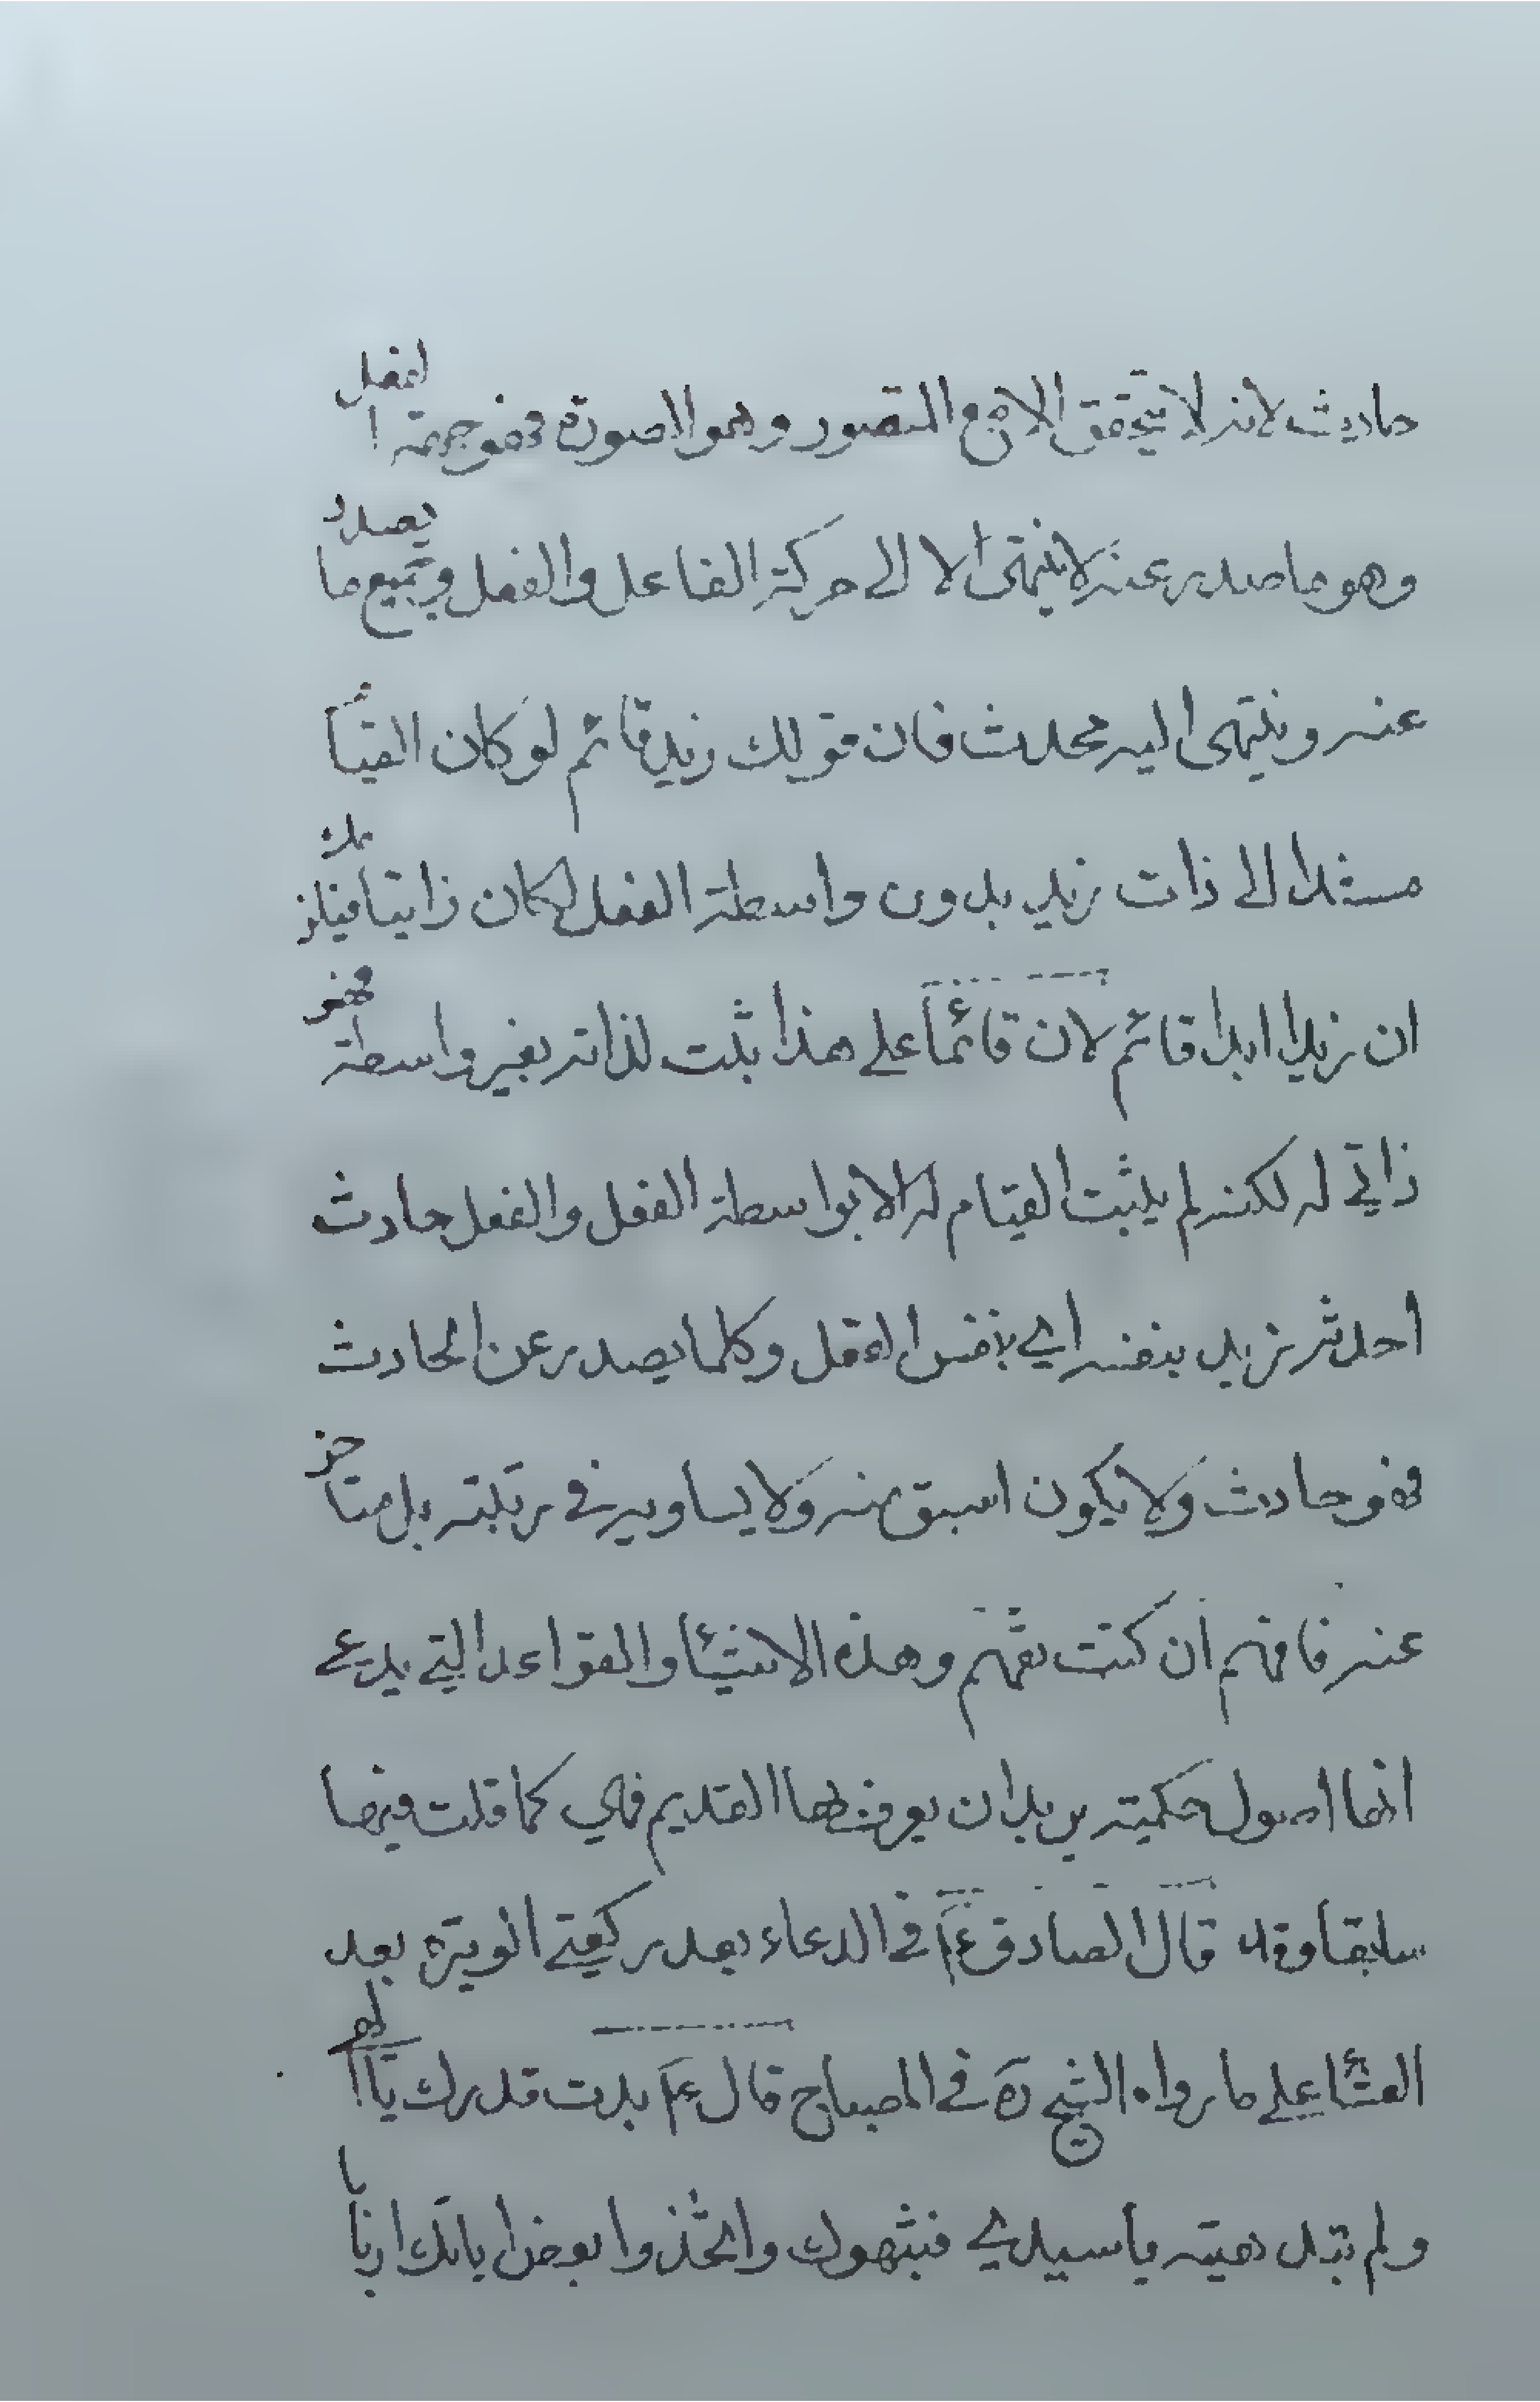 حادث لانه لا يتحقق الا مع المتصور وهو الصورة فهو جهة الفعل
وهو ما صدر عنه لا ينتهى الا الى حركة الفاعل والفعل وجميع ما يصدر
عنه وينتهى اليه محدث فان قولك زيد قائم لو كان القيام
مستندا الى ذات زيد بدون واسطة الفعل لكان ذاتيا فيلزمك
ان زيدا ابدا قائم لان قائما على هذا ثبت لذاته بغير واسطة فهو
ذاتي له لكنه لم يثبت القيام له الا بواسطة الفعل والفعل حادث
احدثه زيد بنفسه اي بنفس الفعل وكلما يصدر عن الحادث
فهو حادث ولا يكون اسبق منه ولا يساويه في رتبته بل متاخر
عنه فافهم ان كنت تفهم وهذه الاشياء والقواعد التي يدعى
انها اصول حكمية يريد ان يعرف بها القديم فهي كما قلت فيها
سابقا وقد قال الصادق ع في الدعاء بعد ركعتي الوتيرة بعد
العشاء على ما رواه الشيخ ره في المصباح قال ع بدت قدرتك يا الهي
ولم تبد هيئة يا سيدي فشبهوك واتخذوا بعض اياتك اربابا